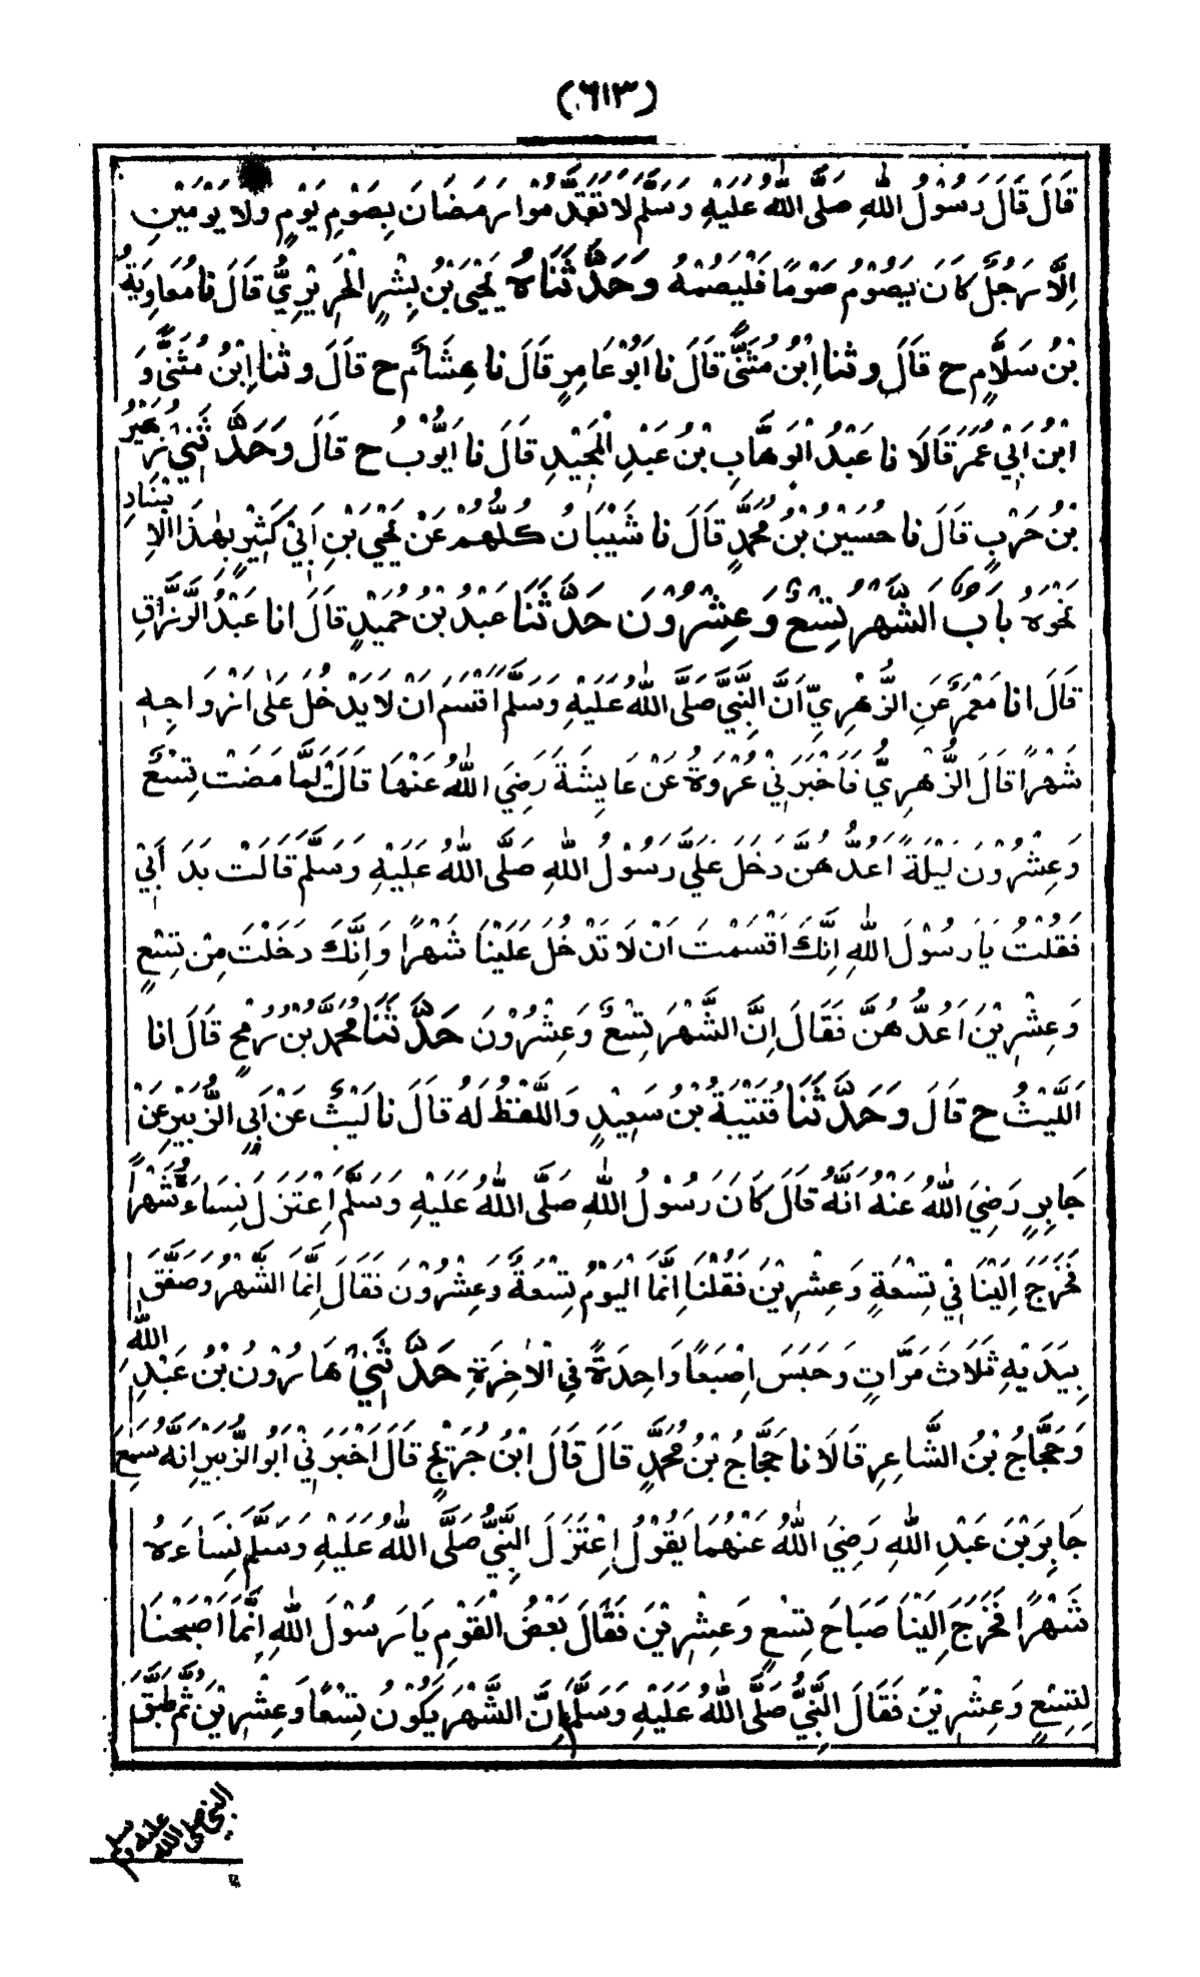 (٦١٣)
قَالَ قَالَ رَسُوْلُ اللهِ صَلَّى اللهُ عَلَيْهِ وَسَلَّمَ لَا تَقَدَّمُوْا رَمَضَانَ بِصَوْمِ يَوْمٍ وَلَا يَوْمَيْنِ
اِلَّا رَجُلٌ كَانَ يَصُوْمُ صَوْمًا فَلْيَصُمْهُ وَحَدَّثَنَاهُ يَحْيَى بْنُ بِشْرٍ الْحَرِيْرِيُّ قَالَ نا مُعَاوِيَةُ
بْنُ سَلَّامٍ ح قَالَ وثنا اِبْنُ مُثَنًّى قَالَ نا اَبُوْ عَامِرٍ قَالَ نا هِشَامٌ ح قَالَ وثنا اِبْنُ مُثَنًّى وَ
ابْنُ اَبِيْ عُمَرَ قَالَا نا عَبْدُ الْوَهَّابِ بْنُ عَبْدِ الْمَجِيْدِ قَالَ نا اَيُّوْبُ ح قَالَ وَحَدَّثَنِيْ زُهَيْرُ
بْنُ حَرْبٍ قَالَ نا حُسَيْنُ بْنُ مُحَمَّدٍ قَالَ نا شَيْبَانُ كُلُّهُمْ عَنْ يَحْيَى بْنِ اَبِيْ كَثِيْرٍ بِهٰذَا الْاِسْنَادِ
نَحْوَهُ بَابُ الشَّهْرِ تِسْعٌ وَعِشْرُوْنَ حَدَّثَنَا عَبْدُ بْنُ حُمَيْدٍ قَالَ انا عَبْدُ الرَّزَّاقِ
قَالَ انا مَعْمَرٌ عَنِ الزُّهْرِيِّ اَنَّ النَّبِيَّ صَلَّى اللهُ عَلَيْهِ وَسَلَّمَ اَقْسَمَ اَنْ لَا يَدْخُلَ عَلٰى اَزْوَاجِهٖ
شَهْرًا قَالَ الزُّهْرِيُّ فَاَخْبَرَنِيْ عُرْوَةُ عَنْ عَايِشَةَ رَضِيَ اللهُ عَنْهَا قَالَتْ لَمَّا مَضَتْ تِسْعٌ
وَعِشْرُوْنَ لَيْلَةً اَعُدُّهُنَّ دَخَلَ عَلَيَّ رَسُوْلُ اللهِ صَلَّى اللهُ عَلَيْهِ وَسَلَّمَ قَالَتْ بَدَأَ بِيْ
فَقُلْتُ يَا رَسُوْلَ اللهِ اِنَّكَ اَقْسَمْتَ اَنْ لَا تَدْخُلَ عَلَيْنَا شَهْرًا وَاِنَّكَ دَخَلْتَ مِنْ تِسْعٍ
وَعِشْرِيْنَ اَعُدُّهُنَّ فَقَالَ اِنَّ الشَّهْرَ تِسْعٌ وَعِشْرُوْنَ حَدَّثَنَا مُحَمَّدُ بْنُ رُمْحٍ قَالَ انا
اَللَّيْثُ ح قَالَ وَحَدَّثَنَا قُتَيْبَةُ بْنُ سَعِيْدٍ وَاللَّفْظُ لَهُ قَالَ نا لَيْثٌ عَنْ اَبِي الزُّبَيْرِ عَنْ
جَابِرٍ رَضِيَ اللهُ عَنْهُ اَنَّهُ قَالَ كَانَ رَسُوْلُ اللهِ صَلَّى اللهُ عَلَيْهِ وَسَلَّمَ اِعْتَزَلَ نِسَاءَهُ شَهْرًا
فَخَرَجَ اِلَيْنَا فِيْ تِسْعَةٍ وَعِشْرِيْنَ فَقُلْنَا اِنَّمَا الْيَوْمُ تِسْعَةٌ وَعِشْرُوْنَ فَقَالَ اِنَّمَا الشَّهْرُ وَصَفَّقَ
بِيَدَيْهِ ثَلَاثَ مَرَّاتٍ وَحَبَسَ اِصْبَعًا وَاحِدَةً فِي الْاٰخِرَةِ حَدَّثَنِيْ هَارُوْنُ بْنُ عَبْدِ اللهِ
وَحَجَّاجُ بْنُ الشَّاعِرِ قَالَا نا حَجَّاجُ بْنُ مُحَمَّدٍ قَالَ قَالَ ابْنُ جُرَيْجٍ قَالَ اَخْبَرَنِيْ اَبُو الزُّبَيْرِ اَنَّهُ سَمِعَ
جَابِرَ بْنَ عَبْدِ اللهِ رَضِيَ اللهُ عَنْهُمَا يَقُوْلُ اِعْتَزَلَ النَّبِيُّ صَلَّى اللهُ عَلَيْهِ وَسَلَّمَ نِسَاءَهُ
شَهْرًا فَخَرَجَ اِلَيْنَا صَبَاحَ تِسْعٍ وَعِشْرِيْنَ فَقَالَ بَعْضُ الْقَوْمِ يَا رَسُوْلَ اللهِ اِنَّمَا اَصْبَحْنَا
لِتِسْعٍ وَعِشْرِيْنَ فَقَالَ النَّبِيُّ صَلَّى اللهُ عَلَيْهِ وَسَلَّمَ اِنَّ الشَّهْرَ يَكُوْنُ تِسْعًا وَعِشْرِيْنَ ثُمَّ طَبَّقَ
النبي صلى الله عليه وسلم